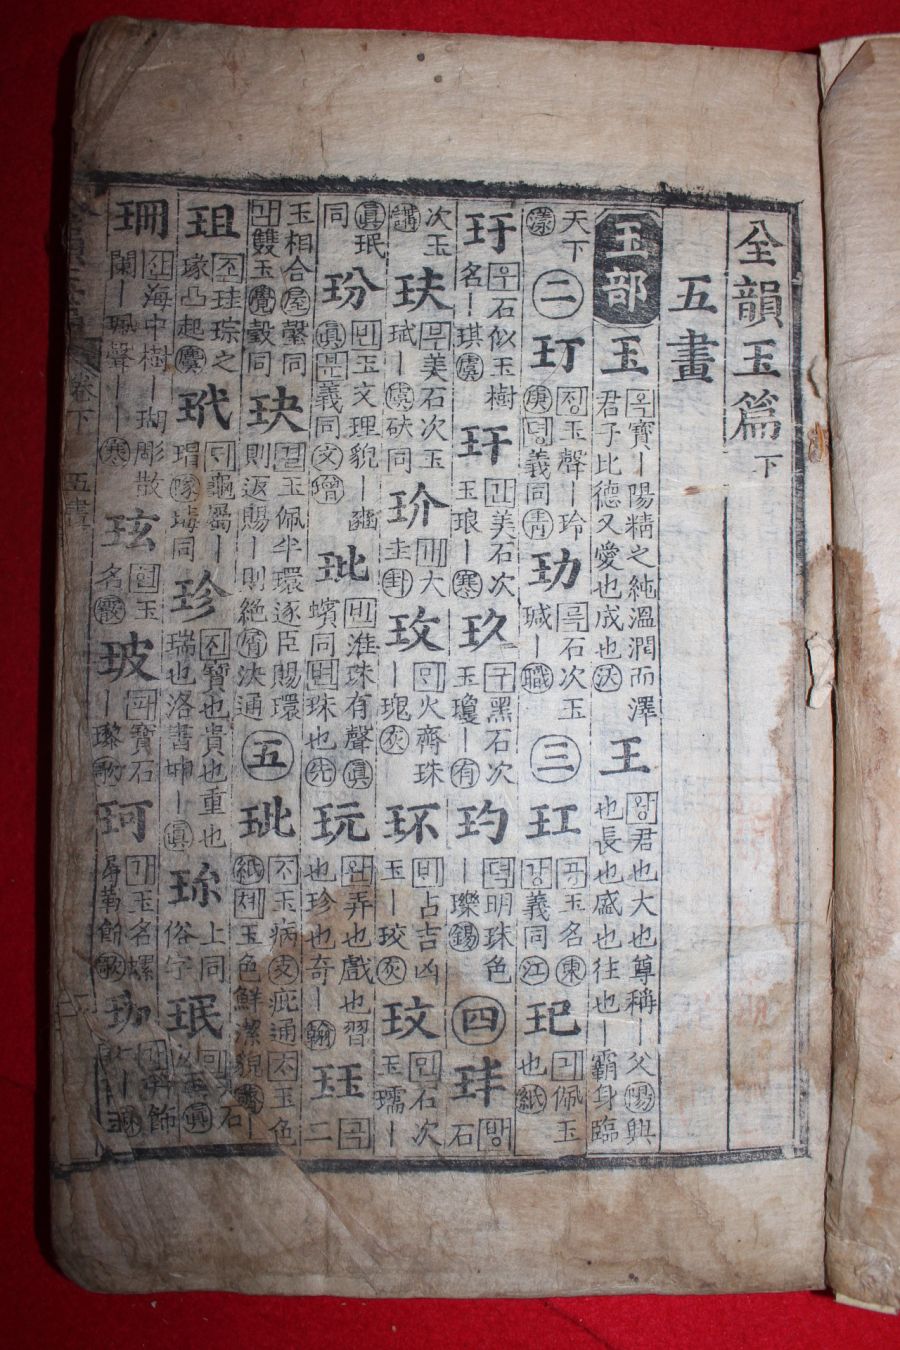 全韻玉篇下
五畫
玉部 玉 옥寶ㅣ陽精之純溫潤而澤君子比德又愛也成也沃 王 왕君也大也尊稱ㅣ父陽興也長也盛也往也ㅣ霸身臨
天下漾 二 玎 정玉聲ㅣ玲庚뎡義同靑 玏 륵石次玉瑊ㅣ職 三 玒 공玉名東강義同江 玘 긔佩玉也紙
玗 우石似玉樹名ㅣ琪虞 玕 간美石次玉琅ㅣ寒 玖 구黑石次玉瓊ㅣ有 玓 뎍明珠色ㅣ瓅錫 四 玤 방石
次玉講 玞 부美石次玉珷ㅣ虞砆同 玠 개大圭卦 玫 火齊珠ㅣ瑰灰 玉ㅣ珓灰 玟 민石次玉瓀ㅣ
眞珉同 玢 빈玉文理貌ㅣ豳眞분義同文 玭 빈淮珠有聲眞蠙同변珠也先 玩 완弄也戲也習也珍也奇ㅣ翰 玨 각二
玉相合屋瑴同각雙玉覺瑴同 玦 결玉佩半環逐臣賜環則返賜ㅣ則絶屑決通 五 玼 ᄌᆞ玉病支疵通ᄌᆞ玉色紙톄玉色鮮潔貌薺
珇 조珪琮之瑑凸起麌 玳 ᄃᆡ龜屬ㅣ瑁隊瑇同 珍 진寶也貴也重也瑞也洛書坤ㅣ眞 珎 上同俗字 珉 민美石次玉眞
珊 산海中樹ㅣ瑚彫散闌ㅣ珮聲ㅣㅣ寒 玹 현玉名霰 玻 파寶石ㅣ瓈歌 珂 가玉名螺屬勒飾歌 珈
卷下 五畫